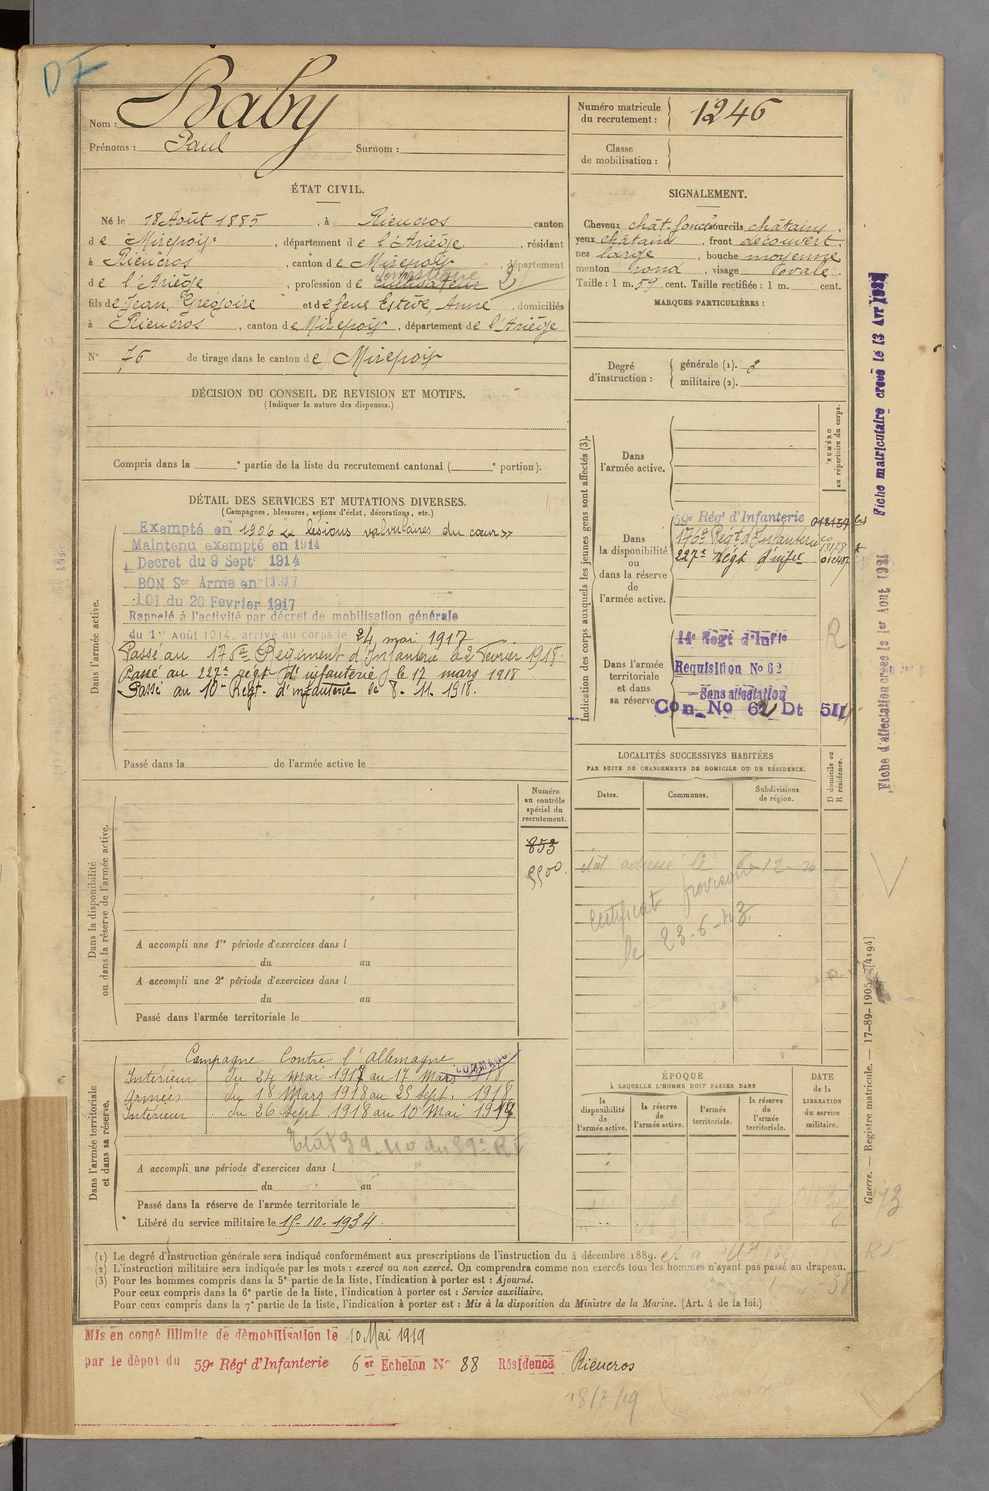 DF
Nom : Baby
Prénoms : Paul Surnom :
Numéro matricule du recrutement : 1246
Classe de mobilisation :
ÉTAT CIVIL.
Né le 18 Août 1885, à Rieucros canton
de Mirepoix, département de l'Ariège, résidant
à Rieucros, canton de Mirepoix, département
de l'Ariège, profession de cultivateur domestique 2
fils de Jean Grégoire et de feue Estève, Anne, domiciliés
à Rieucros, canton de Mirepoix, département de l'Ariège
N° 76 de tirage dans le canton de Mirepoix
SIGNALEMENT.
Cheveux chât. foncé sourcils châtains
yeux châtain, front découvert
nez large, bouche moyenne
menton rond, visage ovale
Taille : 1 m. 59 cent. Taille rectifiée : 1 m. cent.
MARQUES PARTICULIÈRES :
Degré d'instruction : générale (1). 3
militaire (2).
DÉCISION DU CONSEIL DE REVISION ET MOTIFS.
(Indiquer la nature des dispenses.)
Compris dans la e partie de la liste du recrutement cantonal ( e portion).
DÉTAIL DES SERVICES ET MUTATIONS DIVERSES.
(Campagnes, blessures, actions d'éclat, décorations, etc.)
Dans l'armée active.
Exempté en 1906 « lésions valvulaires du cœur »
Maintenu exempté en 1914
Décret du 9 Sept 1914
BON Sce Armé en 1917
LOI du 20 Fevrier 1917
Rappelé à l'activité par décret de mobilisation générale
du 1er Août 1914, arrivé au corps le 24 mai 1917
Passé au 176e Régiment d'Infanterie le 2 Fevrier 1918.
Passé au 227e régt d'infanterie le 17 mars 1918
Passé au 10e Régt. d'infanterie le 8. 11. 1918.
Passé dans la de l'armée active le
Indication des corps auxquels les jeunes gens sont affectés (3).
NUMÉRO au répertoire du corps.
Dans l'armée active.
Dans la disponibilité ou dans la réserve de l'armée active.
59e Régt d'Infanterie
176e Régt d'Infanterie
227e Régt d'infie
Dans l'armée territoriale et dans sa réserve.
14e Regt d'Infie
Requisition No 62
Sans affectation
Con. No 62 Dt 511
R
Fiche matriculaire créée le 13 Avr 1931
Fiche d'affectation créée le 1er Aout 1931
LOCALITÉS SUCCESSIVES HABITÉES
PAR SUITE DE CHANGEMENTS DE DOMICILE OU DE RÉSIDENCE.
Dates. Communes. Subdivisions de région. D domicile ou R résidence.
certificat provisoire
le 23-6-43
Dans la disponibilité ou dans la réserve de l'armée active.
Numéro au contrôle spécial du recrutement.
853
A accompli une 1re période d'exercices dans l
du au
A accompli une 2e période d'exercices dans l
du au
Passé dans l'armée territoriale le
Dans l'armée territoriale et dans sa réserve.
Campagne Contre l'Allemagne
Intérieur du 24 mai 1917 au 17 Mars 1918
Armées du 18 Mars 1918 au 25 Sept. 1918
Intérieur du 26 Sept 1918 au 10 Mai 1919
A accompli une période d'exercices dans l
du au
Passé dans la réserve de l'armée territoriale le
Libéré du service militaire le 15-10-1934.
ÉPOQUE
À LAQUELLE L'HOMME DOIT PASSER DANS
la disponibilité de l'armée active. la réserve de l'armée active. l'armée territoriale. la réserve de l'armée territoriale.
DATE de la LIBÉRATION du service militaire.
Guerre. — Registre matricule. — 17-89-1905. [4194]
(1) Le degré d'instruction générale sera indiqué conformément aux prescriptions de l'instruction du 4 décembre 1889.
(2) L'instruction militaire sera indiquée par les mots : exercé ou non exercé. On comprendra comme non exercés tous les hommes n'ayant pas passé au drapeau.
(3) Pour les hommes compris dans la 5e partie de la liste, l'indication à porter est : Ajourné.
Pour ceux compris dans la 6e partie de la liste, l'indication à porter est : Service auxiliaire.
Pour ceux compris dans la 7e partie de la liste, l'indication à porter est : Mis à la disposition du Ministre de la Marine. (Art. 4 de la loi.)
Mis en congé illimité de démobilisation le 10 Mai 1919
par le dépôt du 59e Régt d'Infanterie 6 er Echelon No 88 Résidence Rieucros
18/7/19